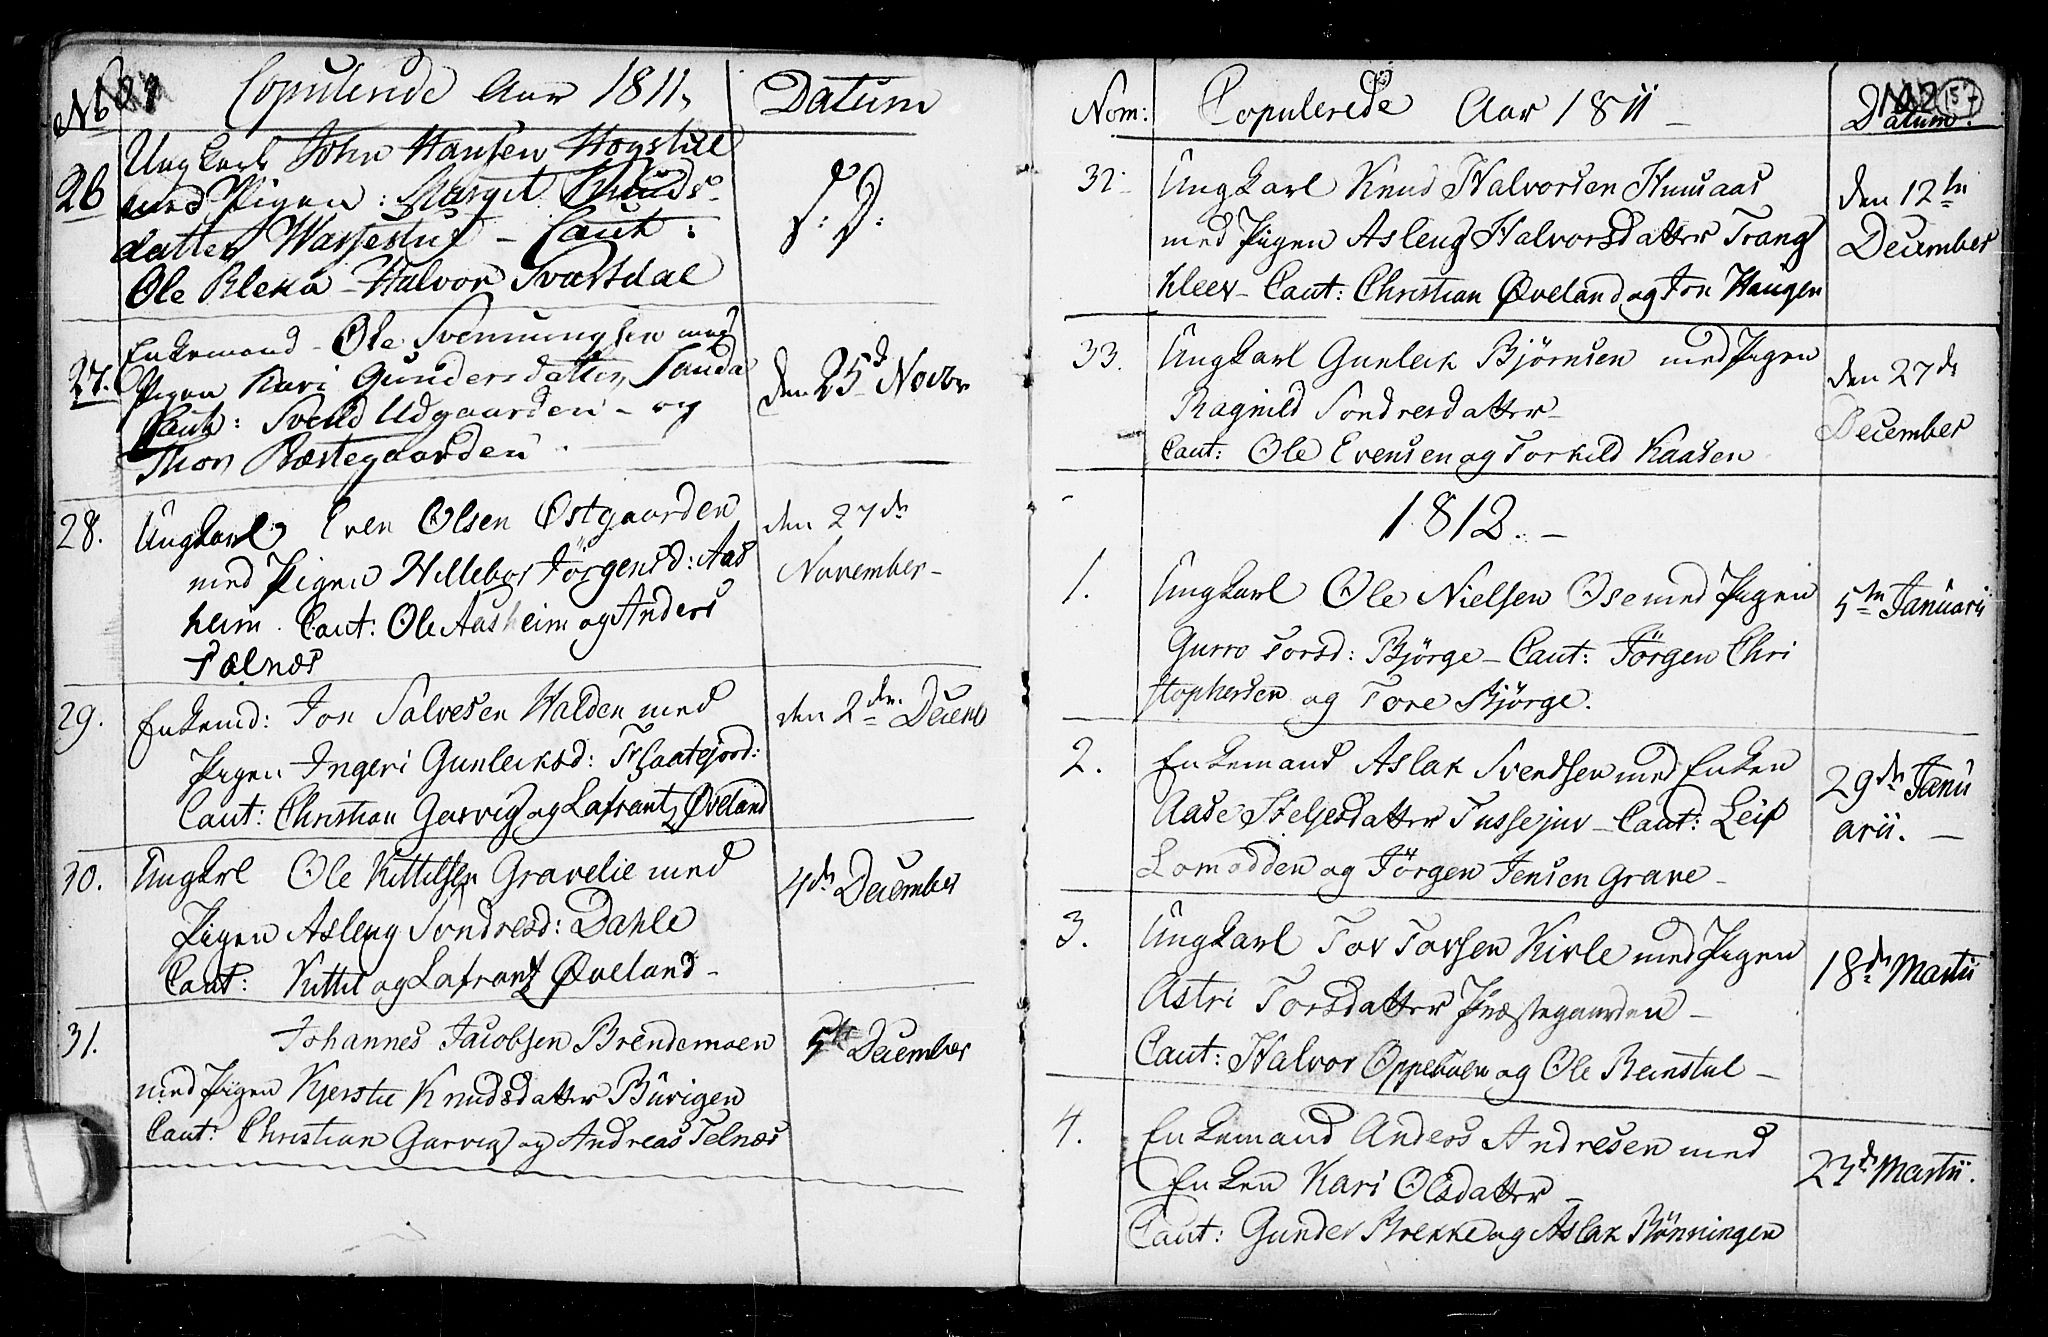 Copulerede Aar 1811,
Datum
26
Ungkarl John Hansen Hogstul
med Pigen: Marget Knuds-
datter Wasjestuf - Caut:
Ole Bleka - Halvor Svartdal
27.
Enkemand - Ole Svennungsen med
Pigen Kari Gundersdatter, Sanda
Caut: Svend Udgaarden - og
Thor Præstegaarden
den 25d Novbr
28.
Ungkarl Even Olsen Østgaarden
med Pigen Hellebor Jörgensd: Aas
heim. Caut: Ole Aasheim og Anders
Telnæs
den 27de
November -
29.
Enkemd: Jon Salvesen Walden med
Pigen Ingeri Gunleiksd: Slaatejord:
Caut: Christian Garvig og Lafrantz Øveland
den 2den Decemb
30.
Ungkrl Ole Kittelsen Gravelie med
Pigen Asleug Sondresd: Dahle
Caut: Kittil og Lafrantz Øveland -
4de December
31.
Johannes Jacobsen Brendemoen
med Pigen Kjerstie Knudsdatter Bûrigen
Caut: Christian Garvig og Andreas Telnæs
5te December
157
Nom:
Copulerede Aar 1811 -
Datum.
32.
Ungkarl Knud Halvorsen Huusaas
med Pigen Asleug Halvorsdatter Trang
kleev - Caut: Christian Øveland og Jon Haugen
den 12te
December
33.
Ungkarl Gunleik Björnsen med Pigen
Ragnild Sondresdatter -
Caut: Ole Evensen og Torkild Kaasen
den 27de
December
1812. -
1.
Ungkarl Ole Nielsen Ose med Pigen
Gurro Torsd: Björge - Caut: Jörgen Chri
stophersen og Tore Björge.
5te Januarii
2.
Enkemand Aslak Svendsen med Enken
Aase Heljesdatter Tussejuv - Caut: Leif
Lomodden og Jörgen Jensen Grave -
29de Janu
arii. -
3.
Ungkarl Tov Tovsen Kirle med Pigen
Astri Torsdatter Præstegaarden -
Caut: Halvor Oppeboen og Ole Reinstul -
18de Martii
4.
Enkemand Anders Andresen med
Enken Kari Olsdatter -
Caut: Gunder Brekke og Aslak Rönningen
23de Martii.